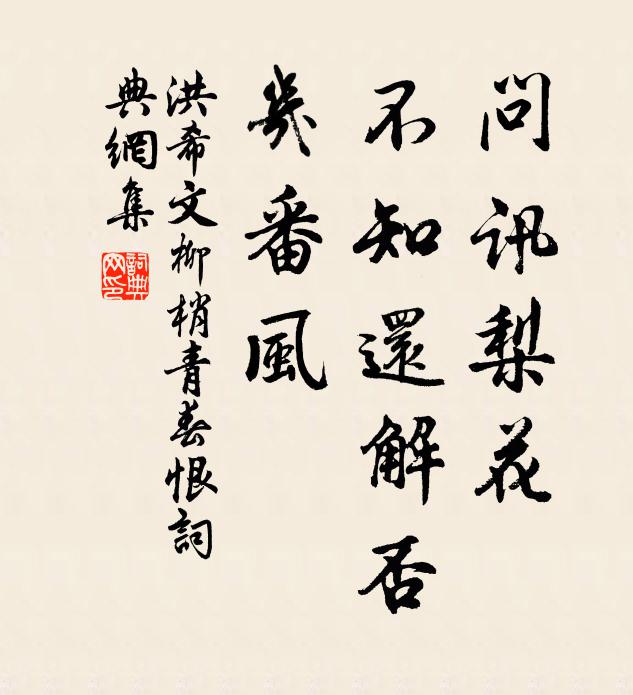 問訊梨花
不知還解否
幾番風
洪希文柳梢青春恨詞
典網集
詞典
网印